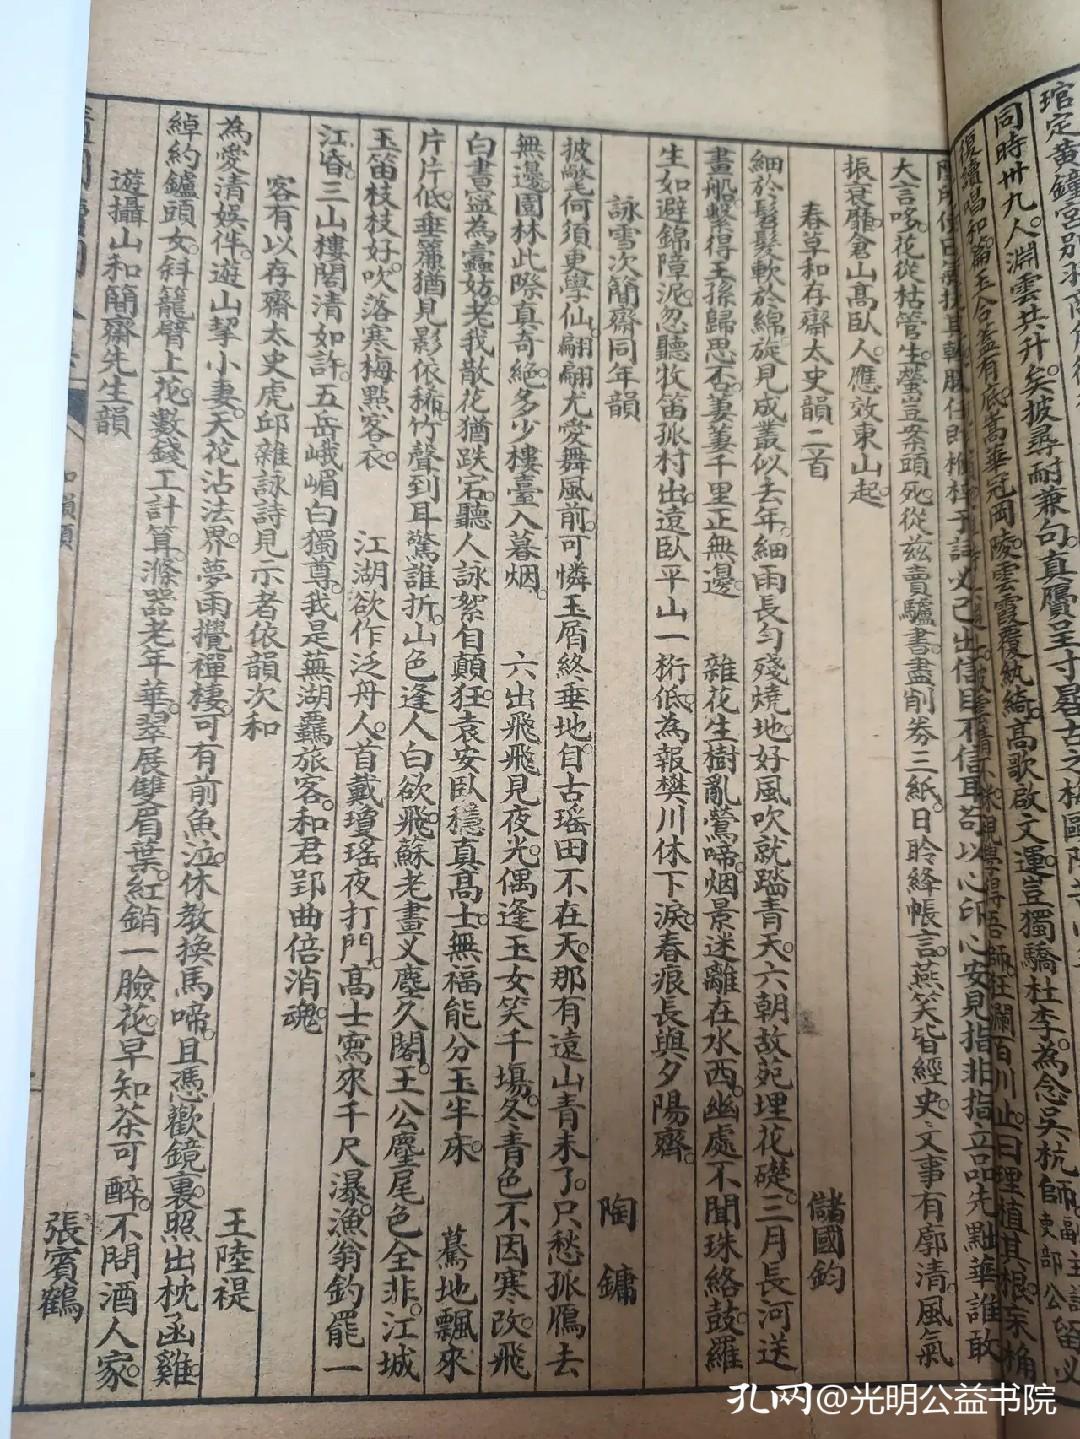 同時卅九人淵雲共升矣披尋耐兼句真贗呈寸晷
大言哆花從枯管生螢豈案頭死從茲賣驢書盡削券三紙日聆絳帳言燕笑皆經史文事有廓清風氣
振衰靡倉山高臥人應效東山起
春草和存齋太史韻二首 儲國鈞
細於髮軟於綿旋見成叢似去年細雨長勻殘燒地好風吹就踏青天六朝故苑埋花礎三月長河送
畫船繫得王孫歸思否萋萋千里正無邊 雜花生樹亂鶯啼烟景迷離在水西幽處不聞珠絡鼓羅
生如避錦障泥忽聽牧笛孤村出遠臥平山一桁低為報樊川休下淚春痕長與夕陽齊
詠雪次簡齋同年韻 陶鏞
披氅何須更學仙翩翩尤愛舞風前可憐玉屑終垂地自古瑤田不在天那有遠山青未了只愁孤鴈去
無邊園林此際真奇絕多少樓臺入暮烟 六出飛飛見夜光偶逢玉女笑千場冬青色不因寒改飛
白書寧為蠹妨老我散花猶跌宕聽人詠絮自顛狂袁安臥穩真高士無福能分玉半床 驀地飄來
片片低垂簾猶見影依稀竹聲到耳驚誰折山色逢人白欲飛蘇老畫叉塵久閣王公麈尾色全非江城
玉笛枝枝好吹落寒梅點客衣 江湖欲作泛舟人首戴瓊瑤夜打門高士寫來千尺瀑漁翁釣罷一
江昏三山樓閣清如許五岳峨嵋白獨尊我是蕪湖羈旅客和君郢曲倍消魂
客有以存齋太史虎邱雜詠詩見示者依韻次和 王陸禔
為愛清娛伴遊山挈小妻天花沾法界夢雨攪禪棲可有前魚泣休教換馬啼且憑歡鏡裏照出枕函雞
綽約鑪頭女斜籠臂上花數錢工計算滌器老年華翠展雙眉葉紅銷一臉花早知茶可醉不問酒人家
遊攝山和簡齋先生韻 張賓鶴
孔网@光明公益书院